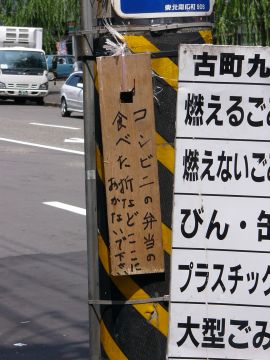 コンビニの弁当の
食べた折などここに
おかないで下さい
古町九
燃えるごみ
燃えないご
びん・缶
プラスチック
大型ごみ